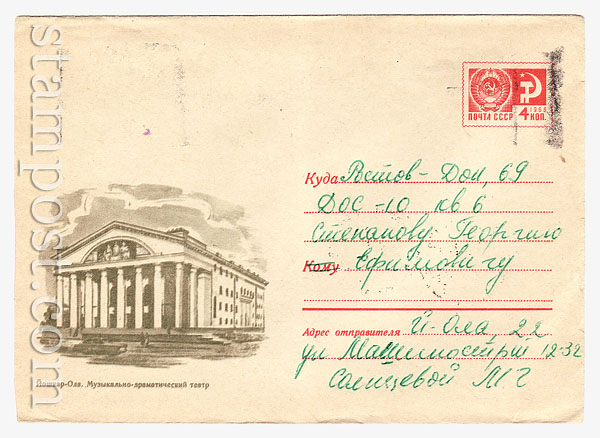 stampost.com
ПОЧТА СССР
1966
4 КОП.
Куда Ростов-Дон, 69
ДОС-10 кв 6
Степанову Георгию
Кому Ефимовичу
Адрес отправителя Й-Ола, 22
ул Машиностр 12-32
Солнцевой М Г
Йошкар-Ола. Музыкально-драматический театр